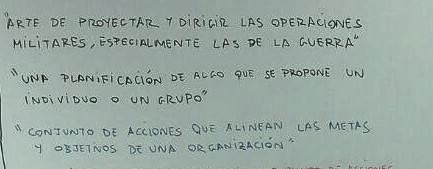 "ARTE DE PROYECTAR Y DIRIGIR LAS OPERACIONES
MILITARES, ESPECIALMENTE LAS DE LA GUERRA"
"UNA PLANIFICACIÓN DE ALGO QUE SE PROPONE UN
INDIVIDUO O UN GRUPO"
"CONJUNTO DE ACCIONES QUE ALINEAN LAS METAS
Y OBJETIVOS DE UNA ORGANIZACIÓN"
DE ACCIONES